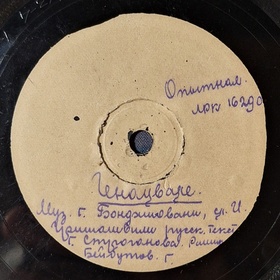 Опытная.
лрк 16290
Генацвале.
Муз. г. Бондишовани, сл. И.
Гришашвили русск. текст
Г. Строганова. Рашид
Бейбутов. Г.